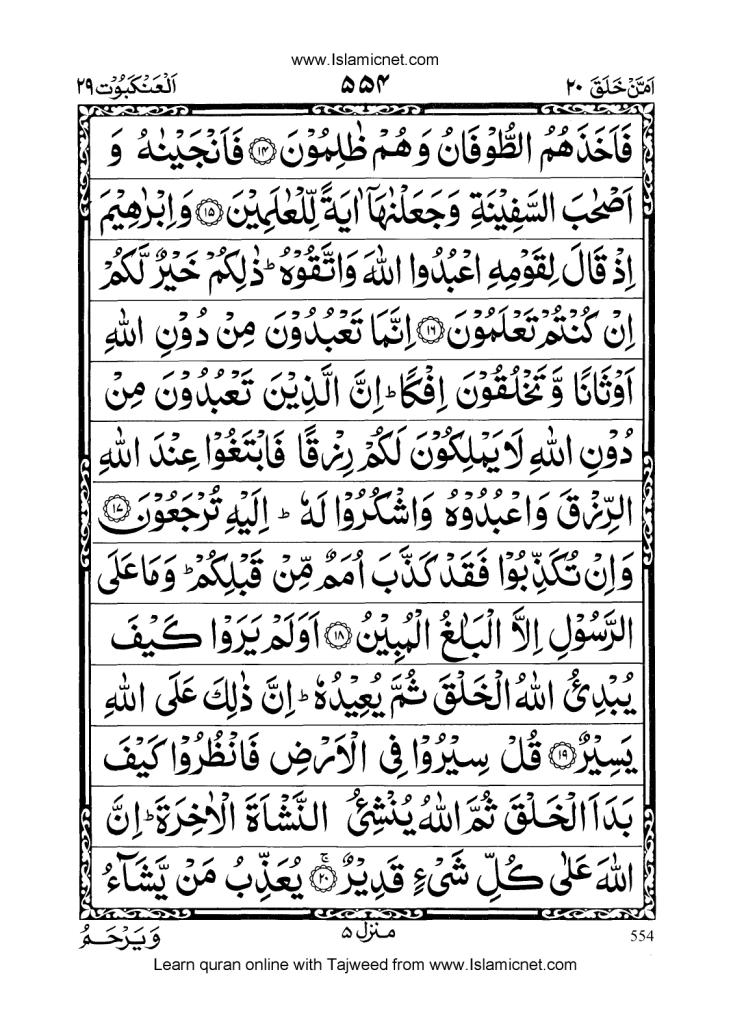 www.Islamicnet.com
اَمَّنْ خَلَقَ ۲۰ ۵۵۴ اَلْعَنْكَبُوْت ۲۹
فَاَخَذَهُمُ الطُّوْفَانُ وَهُمْ ظٰلِمُوْنَ ۱۴ فَاَنْجَيْنٰهُ وَ
اَصْحٰبَ السَّفِيْنَةِ وَجَعَلْنٰهَاۤ اٰيَةً لِّلْعٰلَمِيْنَ ۱۵ وَاِبْرٰهِيْمَ
اِذْ قَالَ لِقَوْمِهِ اعْبُدُوا اللّٰهَ وَاتَّقُوْهُ ؕ ذٰلِكُمْ خَيْرٌ لَّكُمْ
اِنْ كُنْتُمْ تَعْلَمُوْنَ ۱۶ اِنَّمَا تَعْبُدُوْنَ مِنْ دُوْنِ اللّٰهِ
اَوْثَانًا وَّتَخْلُقُوْنَ اِفْكًا ؕ اِنَّ الَّذِيْنَ تَعْبُدُوْنَ مِنْ
دُوْنِ اللّٰهِ لَا يَمْلِكُوْنَ لَكُمْ رِزْقًا فَابْتَغُوْا عِنْدَ اللّٰهِ
الرِّزْقَ وَاعْبُدُوْهُ وَاشْكُرُوْا لَهٗ ؕ اِلَيْهِ تُرْجَعُوْنَ ۱۷
وَاِنْ تُكَذِّبُوْا فَقَدْ كَذَّبَ اُمَمٌ مِّنْ قَبْلِكُمْ ؕ وَمَا عَلَى
الرَّسُوْلِ اِلَّا الْبَلٰغُ الْمُبِيْنُ ۱۸ اَوَلَمْ يَرَوْا كَيْفَ
يُبْدِئُ اللّٰهُ الْخَلْقَ ثُمَّ يُعِيْدُهٗ ؕ اِنَّ ذٰلِكَ عَلَى اللّٰهِ
يَسِيْرٌ ۱۹ قُلْ سِيْرُوْا فِى الْاَرْضِ فَانْظُرُوْا كَيْفَ
بَدَاَ الْخَلْقَ ثُمَّ اللّٰهُ يُنْشِئُ النَّشْاَةَ الْاٰخِرَةَ ؕ اِنَّ
اللّٰهَ عَلٰى كُلِّ شَىْءٍ قَدِيْرٌ ۲۰ يُعَذِّبُ مَنْ يَّشَآءُ
وَيَرْحَمُ منزل ۵ 554
Learn quran online with Tajweed from www.Islamicnet.com